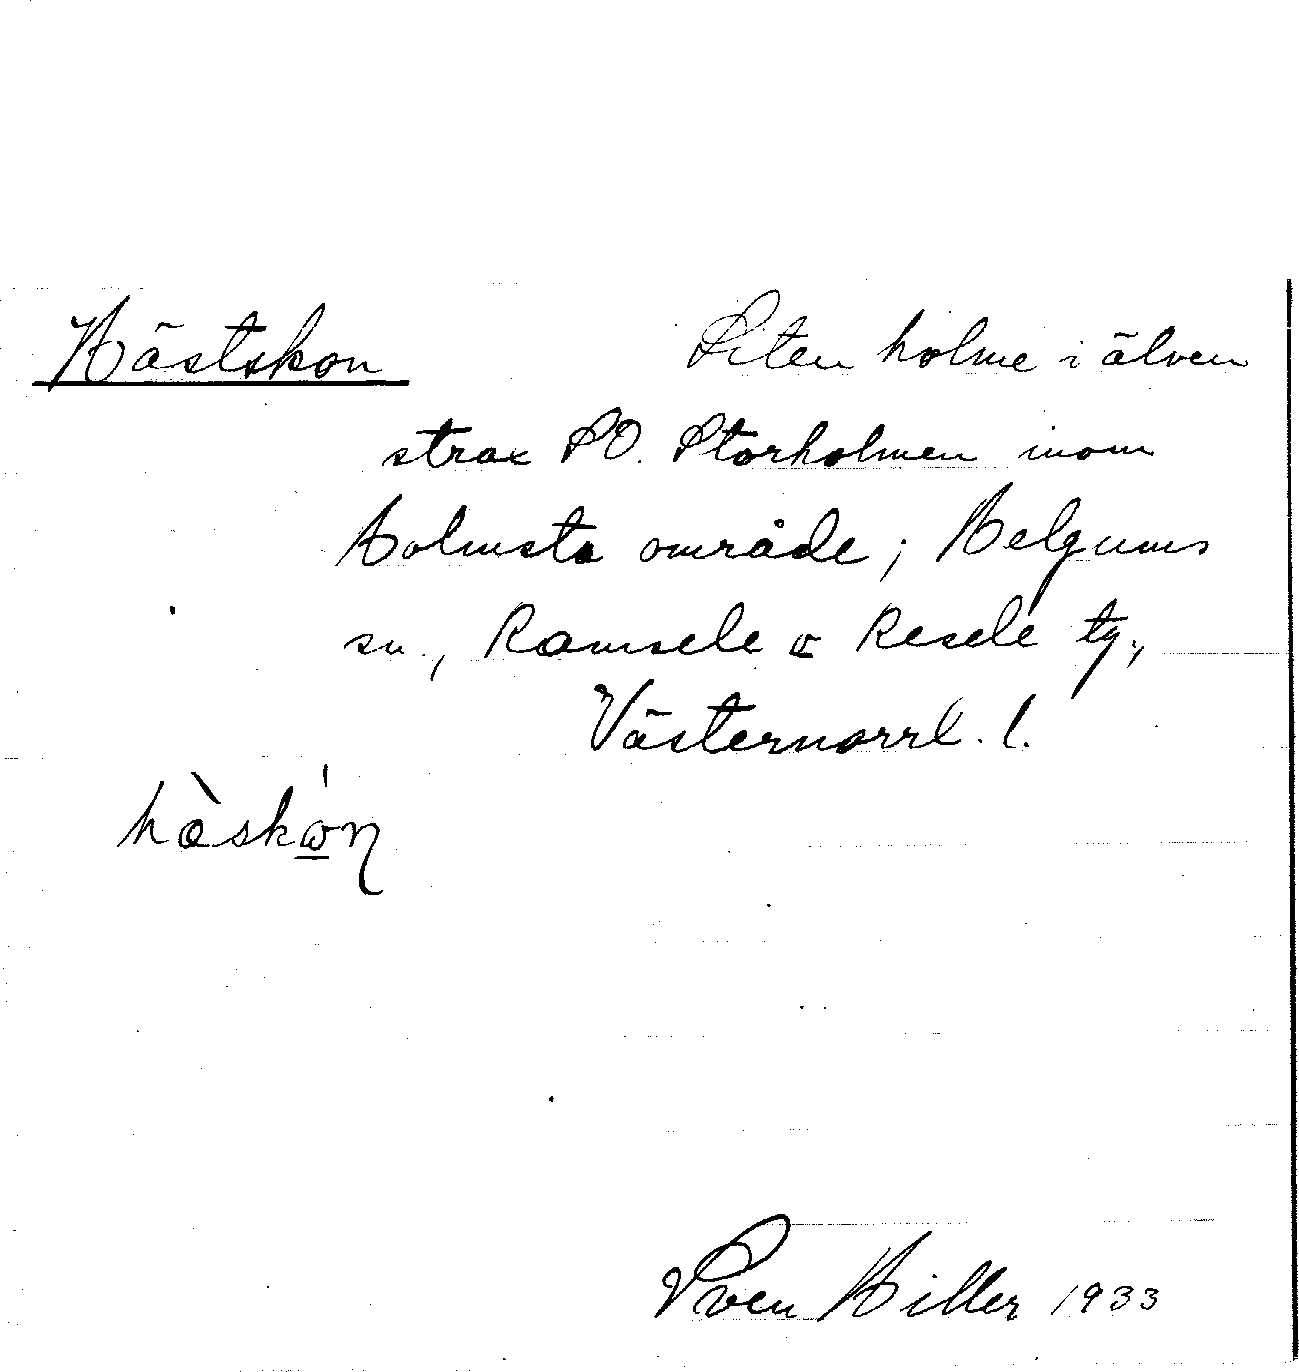 Hästskon Liten holme i älven
strax SO. Storholmen inom
Holmsta område; Helgums
sn., Ramsele o Resele tg.,
Västernorrl. l.
hàskώ̲ŋ
Sven Hiller 1933